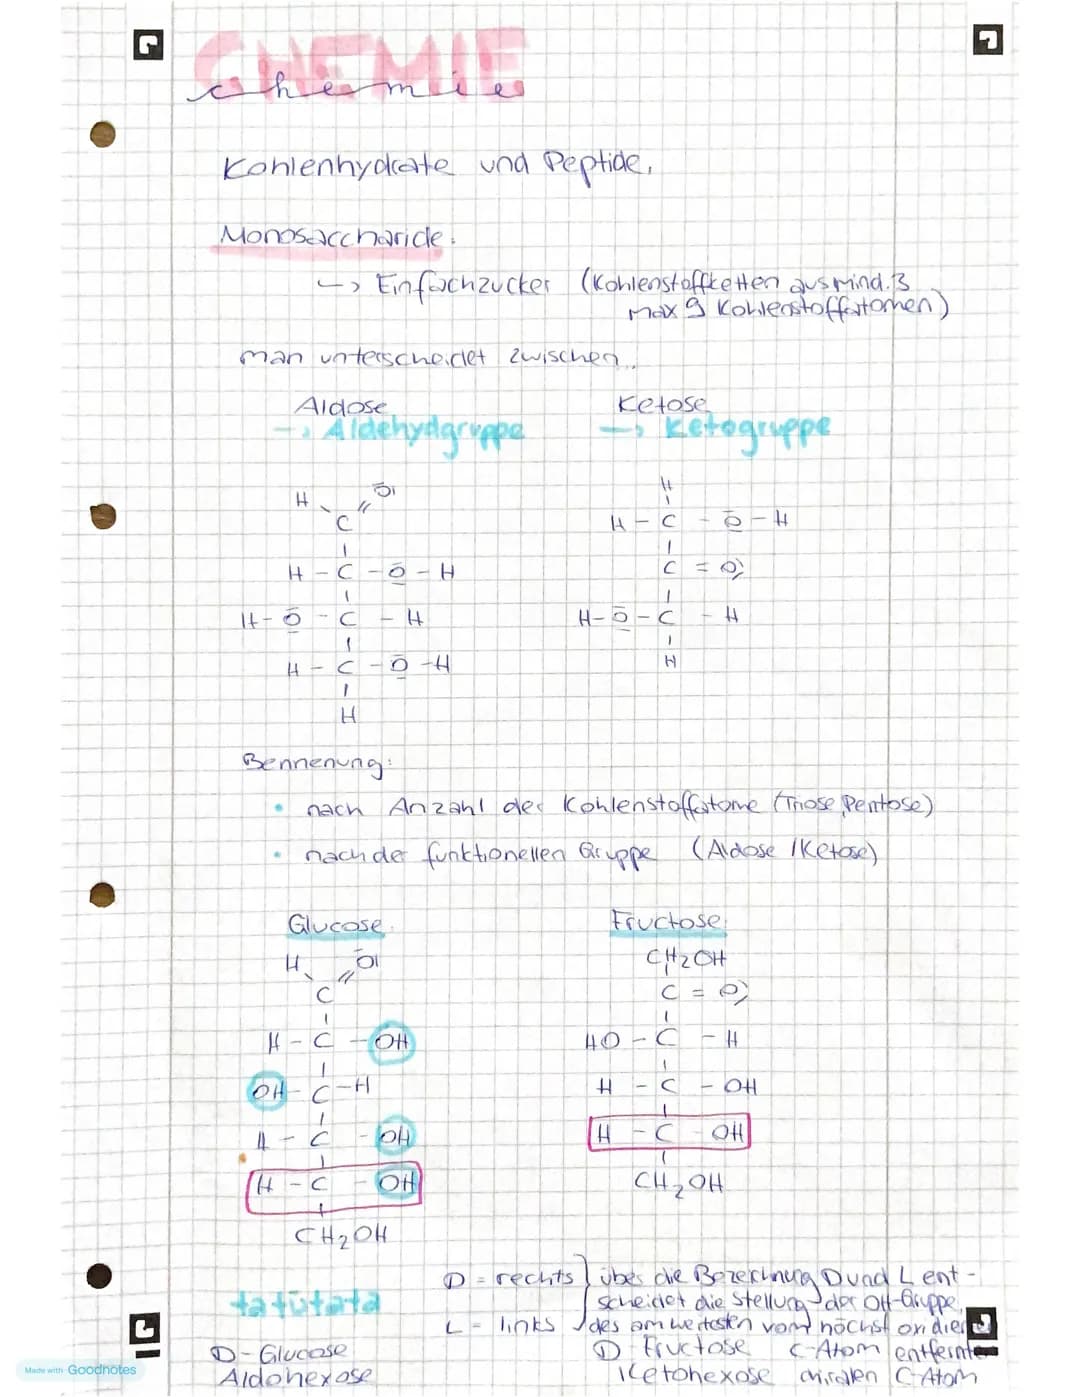 CHEMIE
chemie
Kohlenhydrate und Peptide.
Monosaccharide.
↳ Einfachzucker (Kohlenstoffketten aus mind. 3
max 9 Kohlenstoffatomen)
man unterscheidet zwischen...
Aldose Ketose
→ Aldehydgruppe → Ketogruppe
H O
C
H - C - O - H
H - O - C - H
H - C - O - H
H
H
H - C - O - H
C = O
H - O - C - H
H
Bennenung:
• nach Anzahl der Kohlenstoffatome (Triose, Pentose)
• nach der funktionellen Gruppe (Aldose / Ketose)
Glucose
H O
C
H - C - OH
OH - C - H
H - C - OH
H - C - OH
CH2OH
Fructose
CH2OH
C = O
HO - C - H
H - C - OH
H - C - OH
CH2OH
tatütata
D = rechts
L = links
über die Bezeichnung D und L ent-
scheidet die Stellung der OH-Gruppe,
des am weitesten vom höchst oxidier
C-Atom entfernte
chiralen C-Atom
D - Glucose
Aldohexose
D Fructose
Ketohexose
Made with Goodnotes